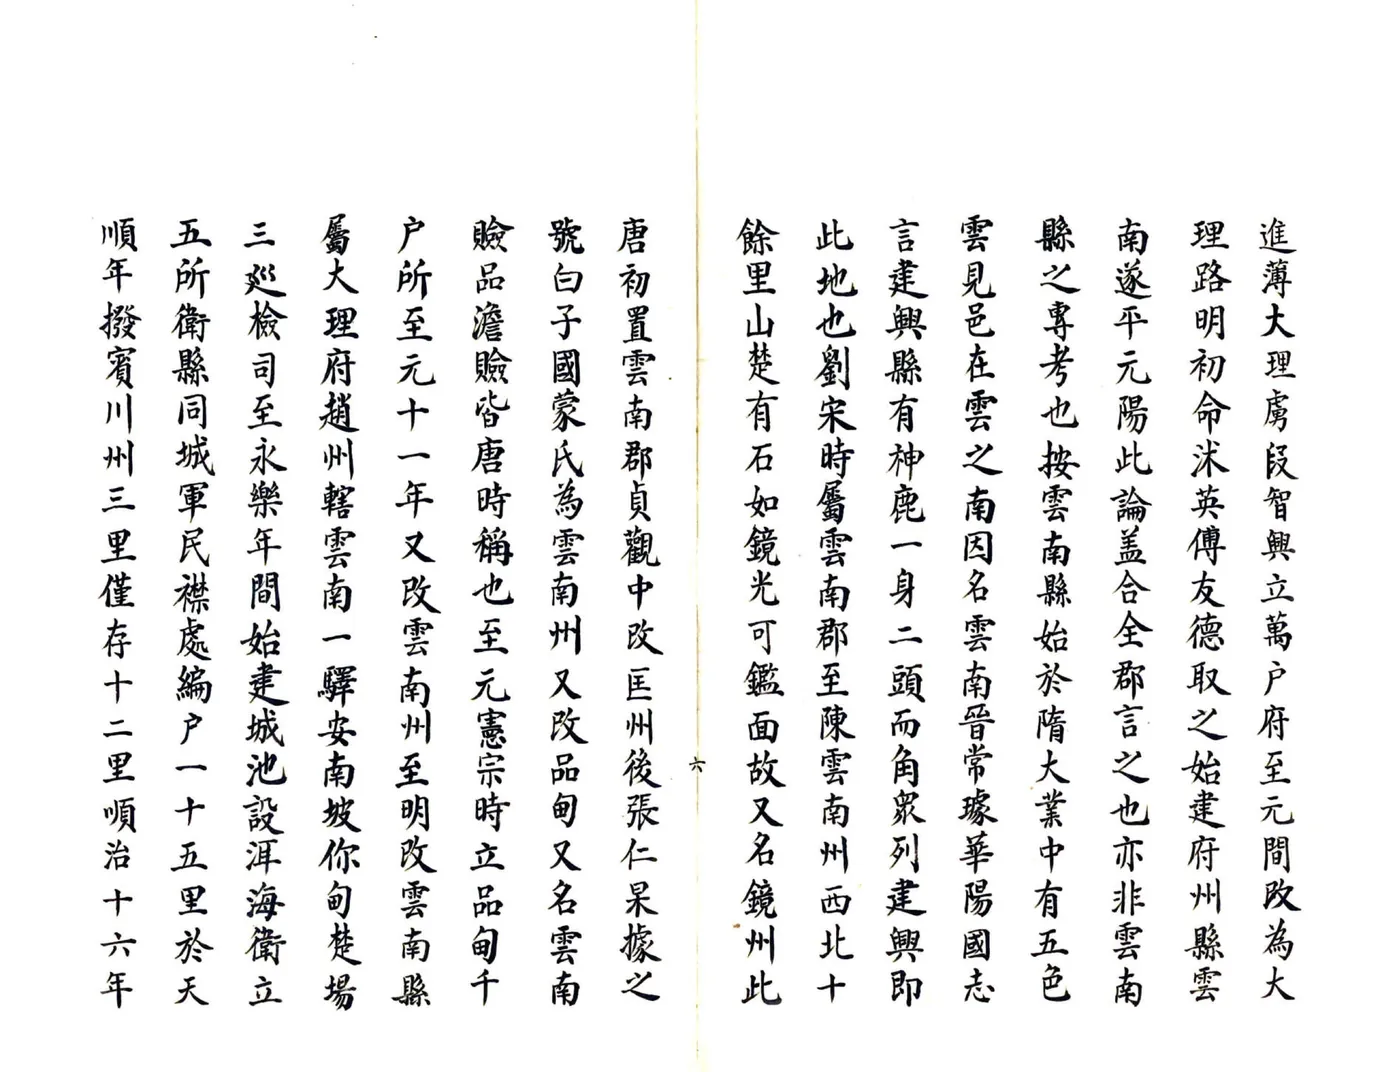 進薄大理虜段智興立萬户府至元間改為大
理路明初命沭英傅友德取之始建府州縣雲
南遂平元陽此論盖合全郡言之也亦非雲南
縣之專考也按雲南縣始於隋大業中有五色
雲見邑在雲之南因名雲南晉常璩華陽國志
言建興縣有神鹿一身二頭而角衆列建興即
此地也劉宋時屬雲南郡至陳雲南州西北十
餘里山楚有石如鏡光可鑑面故又名鏡州此
六
唐初置雲南郡貞觀中改匡州後張仁杲據之
號白子國蒙氏為雲南州又改品甸又名雲南
瞼品澹瞼皆唐時稱也至元憲宗時立品甸千
户所至元十一年又改雲南州至明改雲南縣
屬大理府趙州轄雲南一驛安南坡你甸楚場
三廵檢司至永樂年間始建城池設洱海衛立
五所衛縣同城軍民襟處編户一十五里於天
順年撥賓川州三里僅存十二里順治十六年